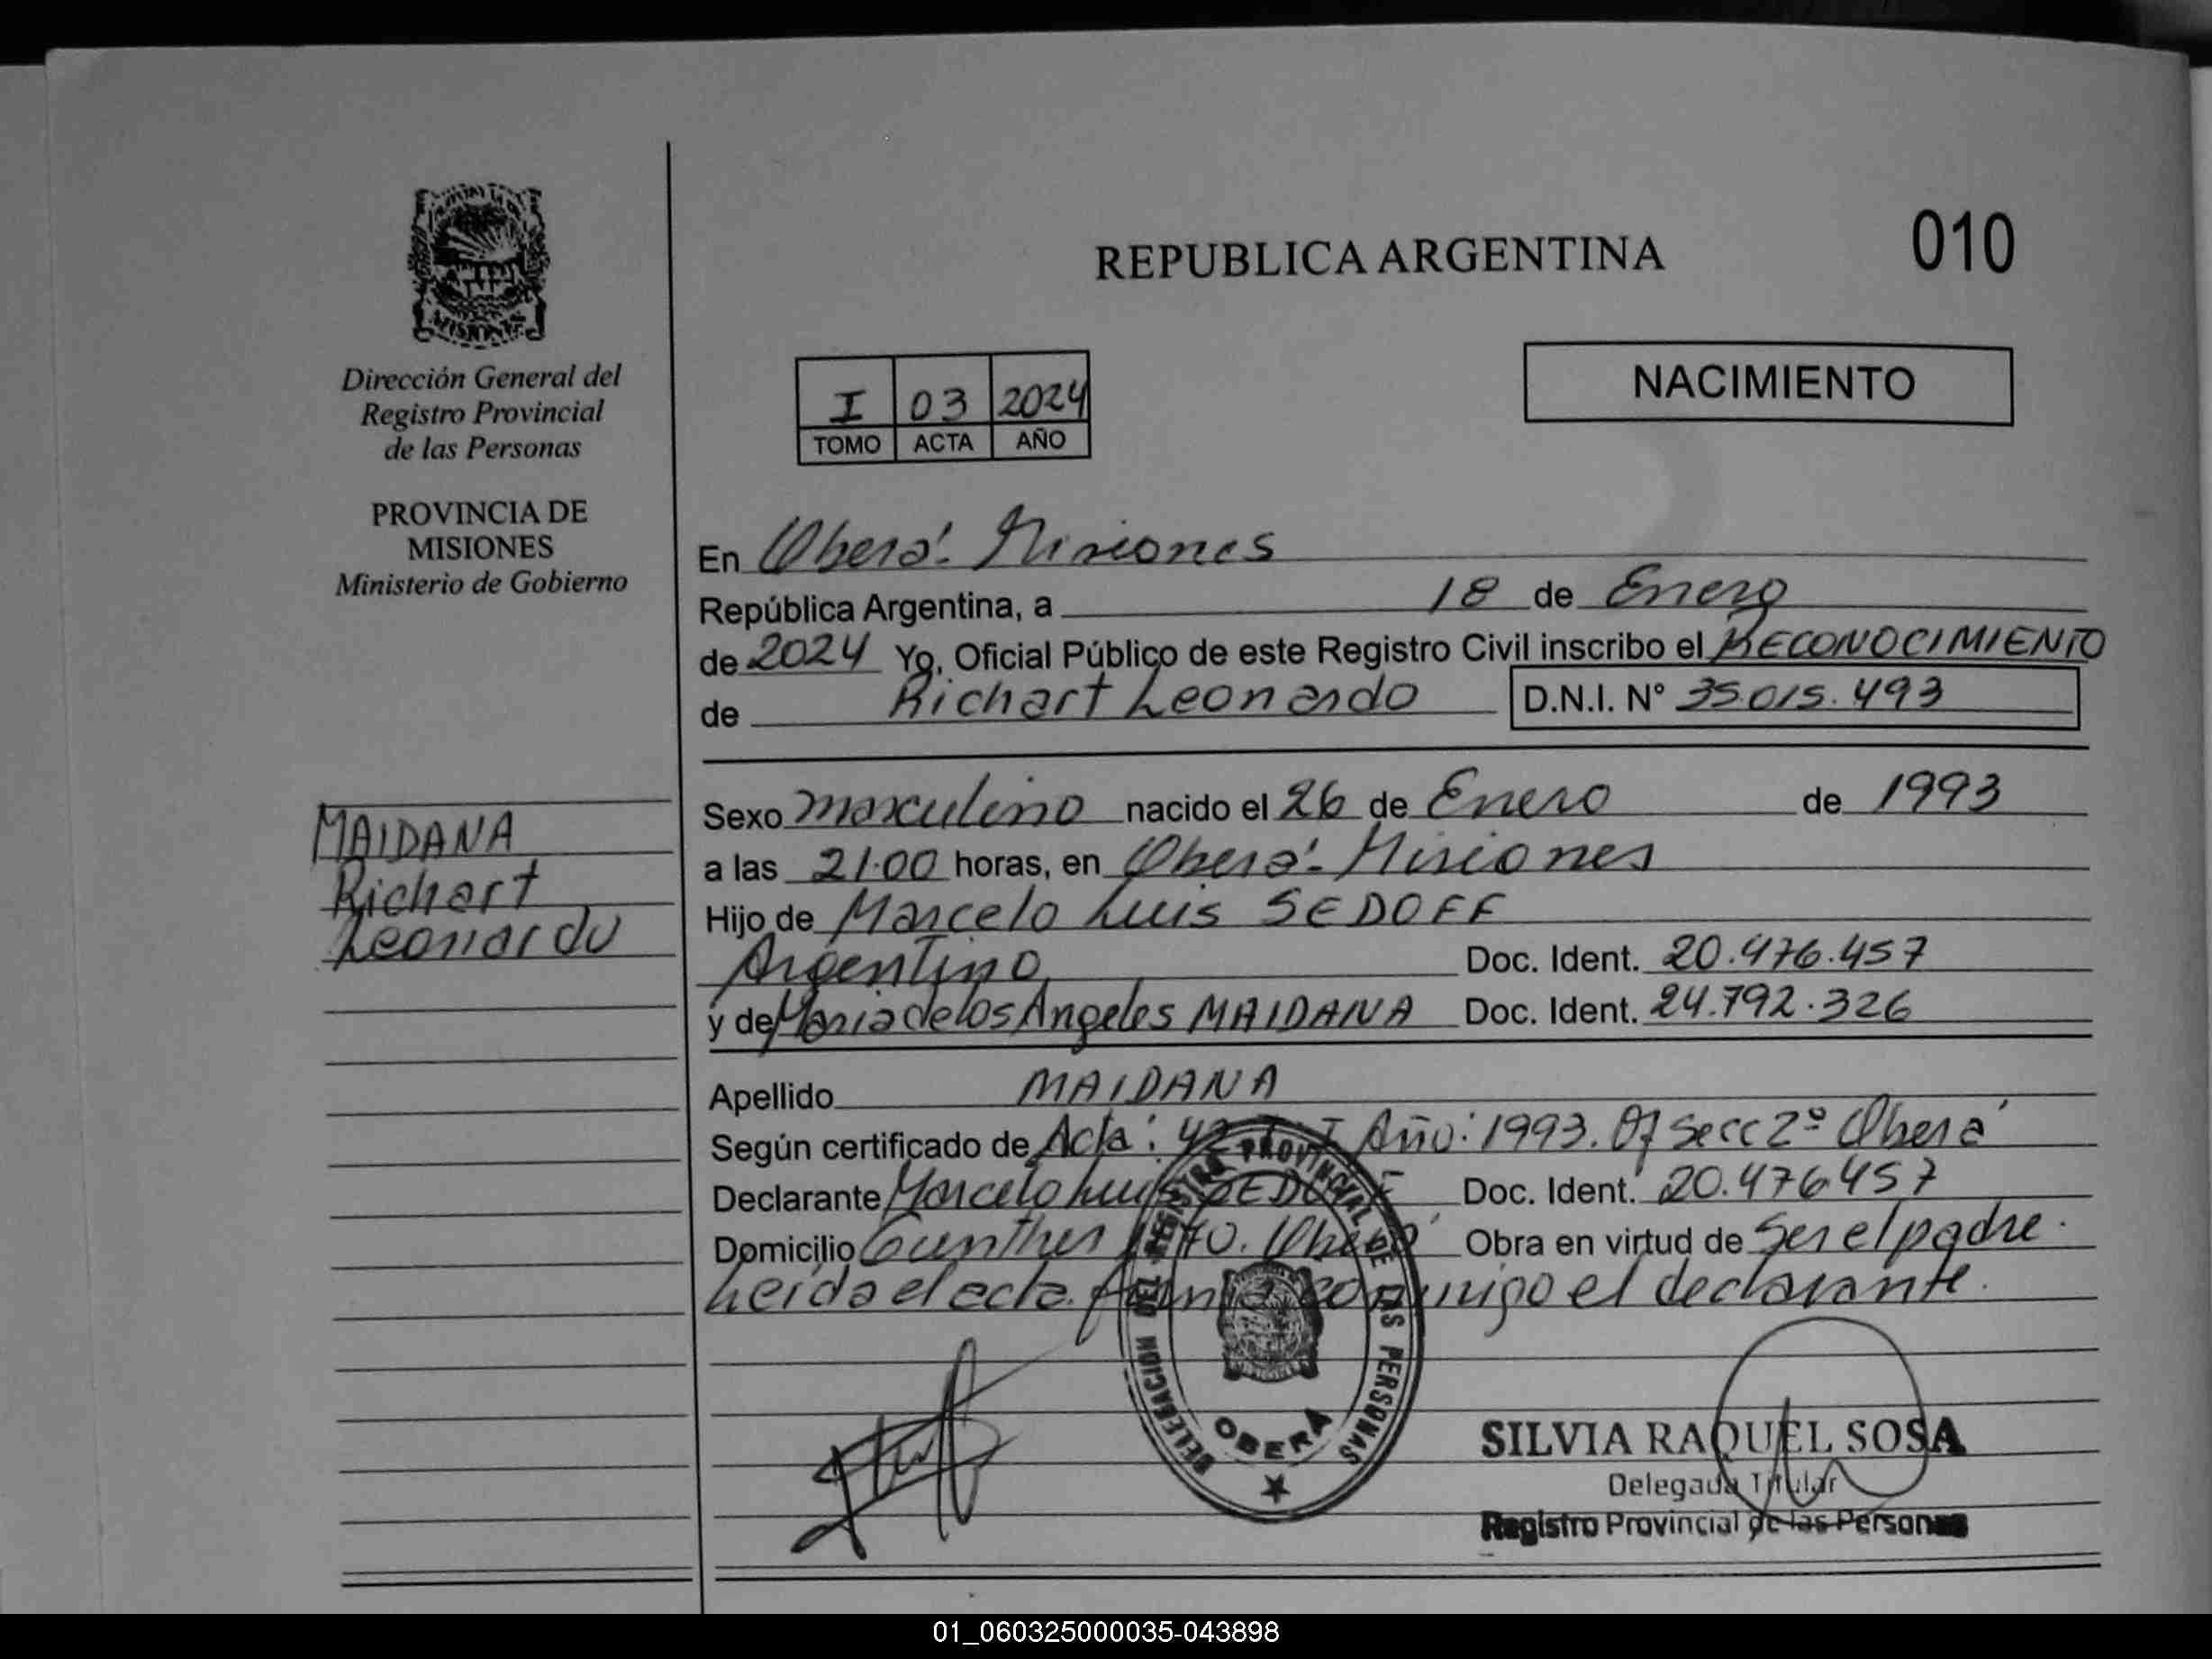 REPUBLICA ARGENTINA
010
Dirección General del
Registro Provincial
de las Personas
PROVINCIA DE
MISIONES
Ministerio de Gobierno
NACIMIENTO
I 03 2024
TOMO ACTA AÑO
En Oberá - Misiones
República Argentina, a 18 de Enero
de 2024 Yo, Oficial Público de este Registro Civil inscribo el RECONOCIMIENTO
de Richart Leonardo D.N.I. N° 35.015.493
MAIDANA
Richart
Leonardo
Sexo masculino nacido el 26 de Enero de 1993
a las 21:00 horas, en Oberá - Misiones
Hijo de Marcelo Luis SEDOFF
Argentino Doc. Ident. 20.476.457
y de Maria de los Angeles MAIDANA Doc. Ident. 24.792.326
Apellido MAIDANA
Según certificado de Acta: I Año: 1993. Of Secc 2º Oberá
Declarante Marcelo Luis SEDOFF Doc. Ident. 20.476457
Domicilio Gunther Oberá Obra en virtud de Ser el padre.
Leída el acta firma conmigo el declarante.
DELEGACION DEL REGISTRO PROVINCIAL DE LAS PERSONAS
OBERÁ
SILVIA RAQUEL SOSA
Delegada Titular
Registro Provincial de las Personas
01_060325000035-043898